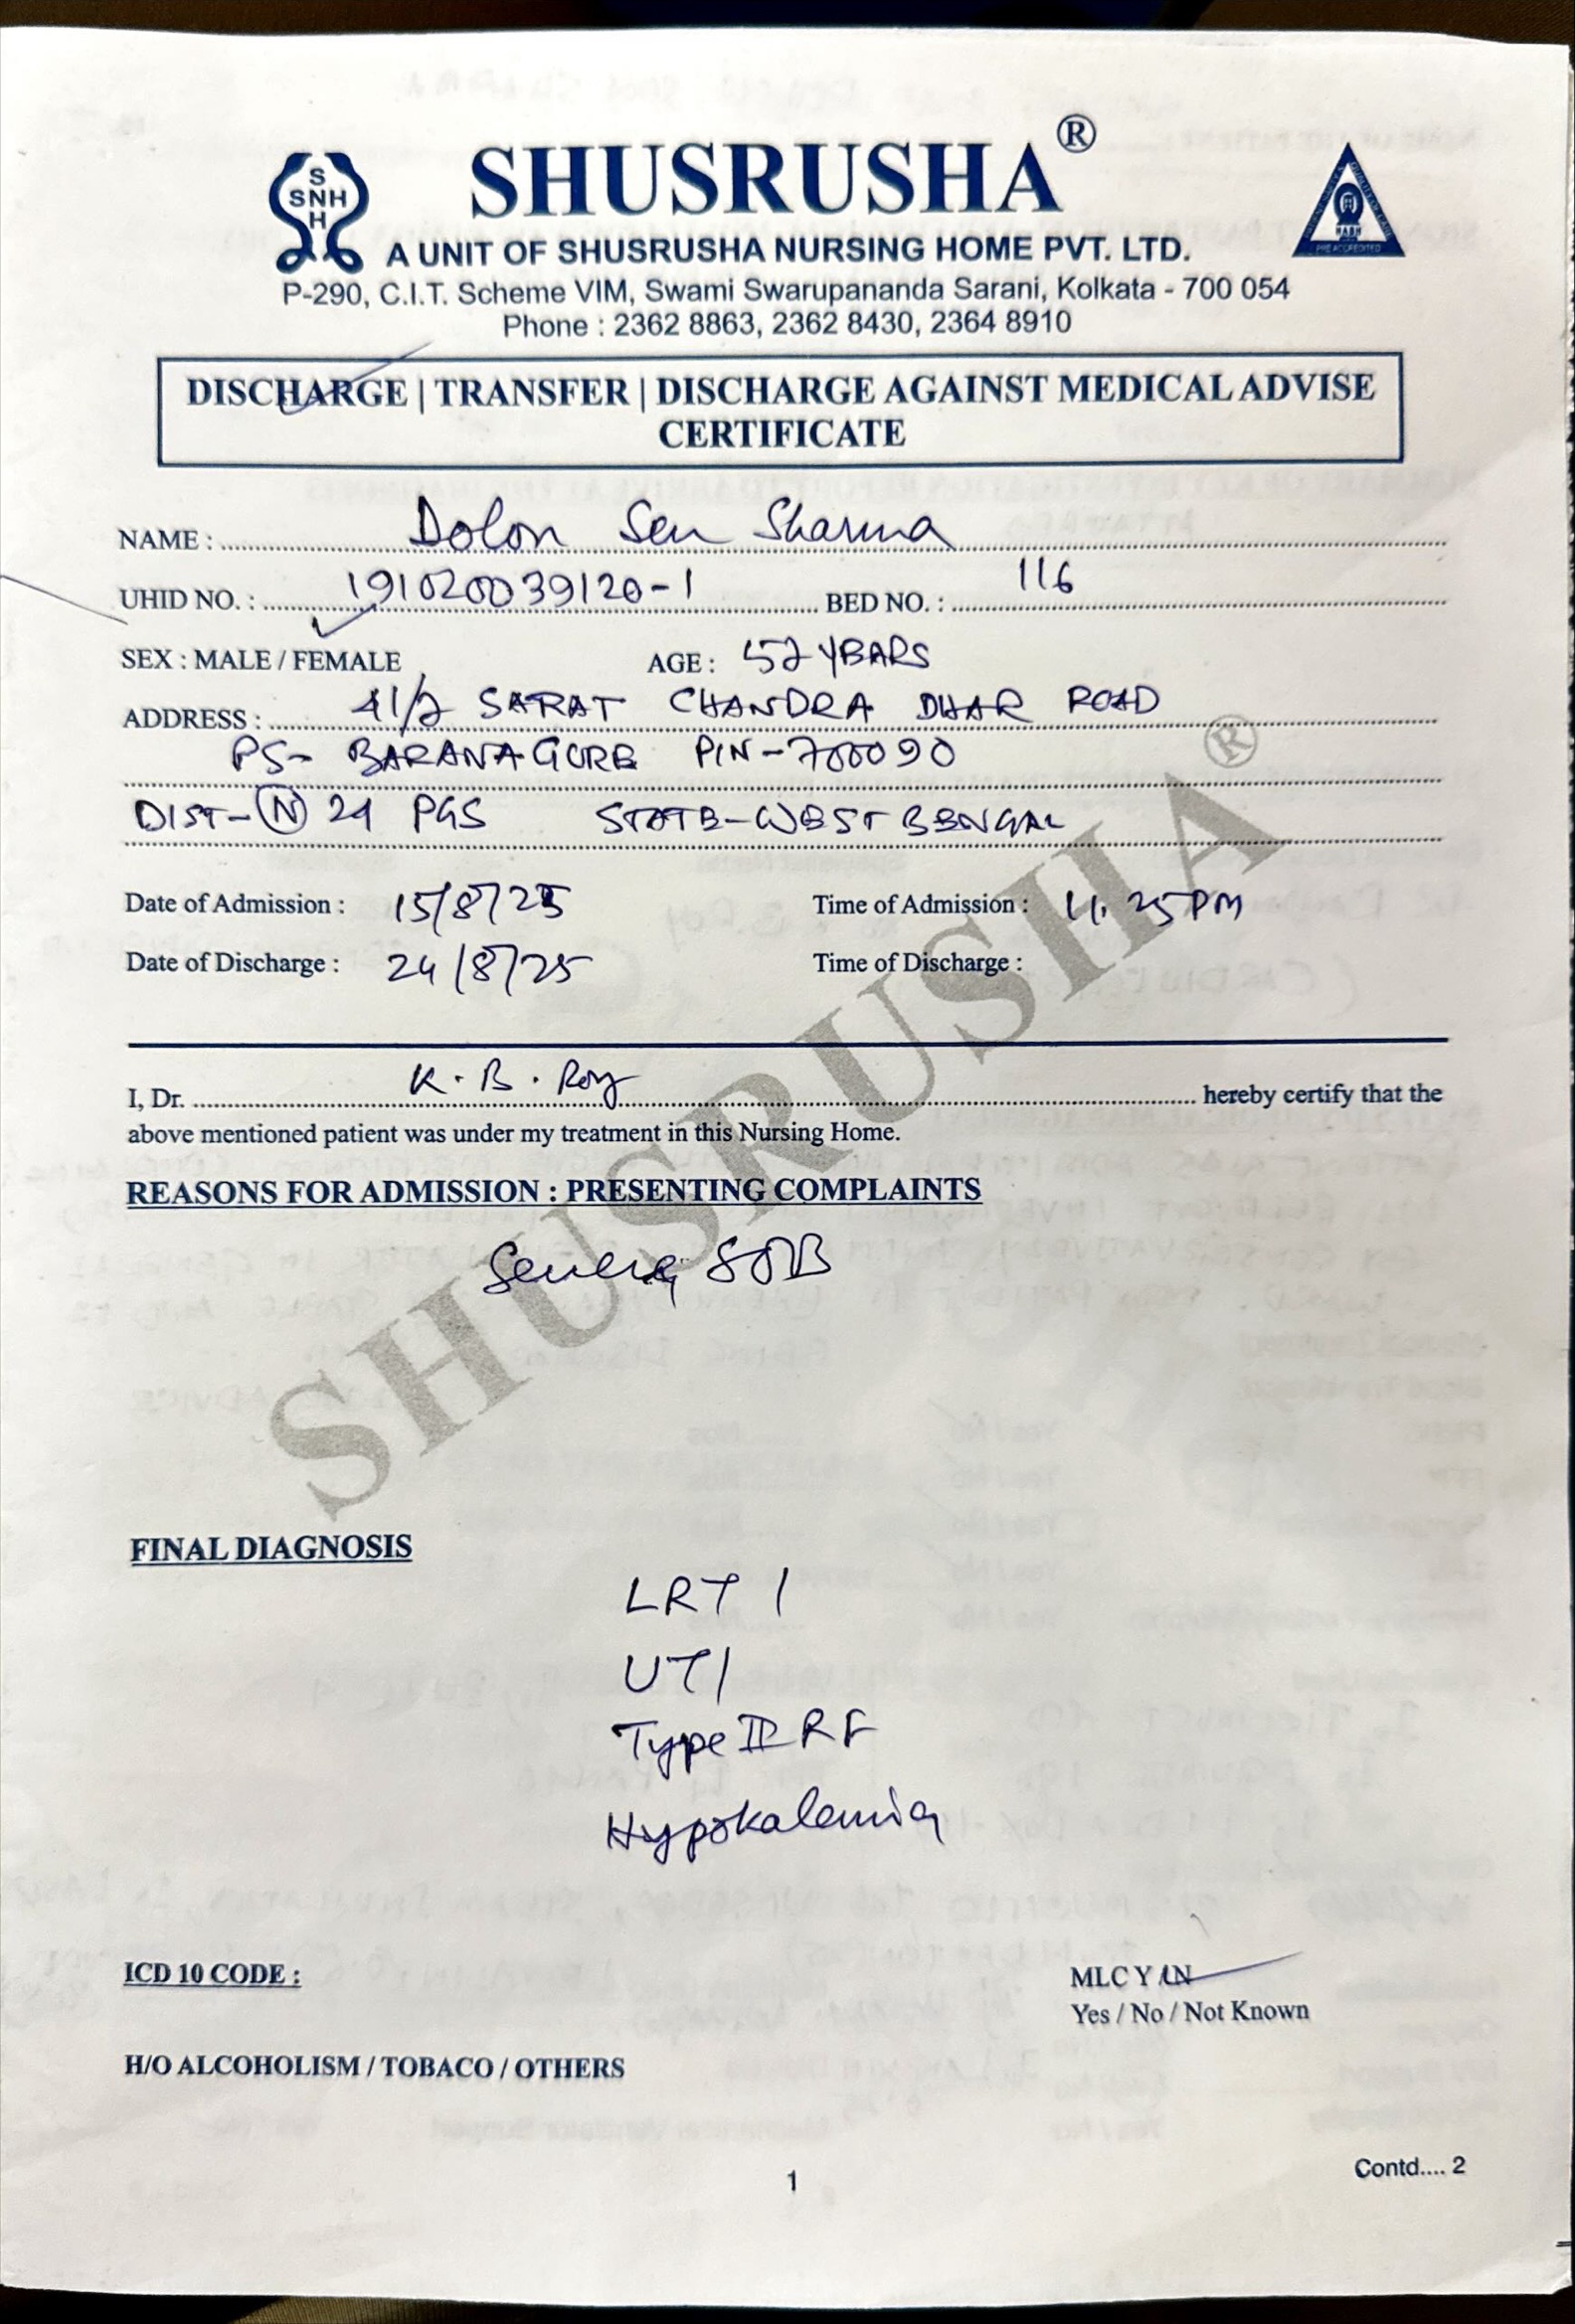 SHUSRUSHA®
S
SNH
H
A UNIT OF SHUSRUSHA NURSING HOME PVT. LTD.
P-290, C.I.T. Scheme VIM, Swami Swarupananda Sarani, Kolkata - 700 054
Phone : 2362 8863, 2362 8430, 2364 8910
DISCHARGE | TRANSFER | DISCHARGE AGAINST MEDICAL ADVISE
CERTIFICATE
NAME : Dolon Sen Sharma
UHID NO. : 191020039120-1 BED NO. : 116
SEX : MALE / FEMALE AGE : 52 YEARS
ADDRESS : 41/2 SARAT CHANDRA DHAR ROAD
PS- BARANAGORE PIN-700090
DIST-(N) 24 PGS STATE-WEST BENGAL
Date of Admission : 15/8/25 Time of Admission : 11.25PM
Date of Discharge : 24/8/25 Time of Discharge :
I, Dr. K. B. Roy hereby certify that the
above mentioned patient was under my treatment in this Nursing Home.
REASONS FOR ADMISSION : PRESENTING COMPLAINTS
Severe SOB
SHUSRUSHA®
FINAL DIAGNOSIS
LRTI
UTI
Type II RF
Hypokalemia
ICD 10 CODE :
MLC Y / N
Yes / No / Not Known
H/O ALCOHOLISM / TOBACO / OTHERS
Contd.... 2
1